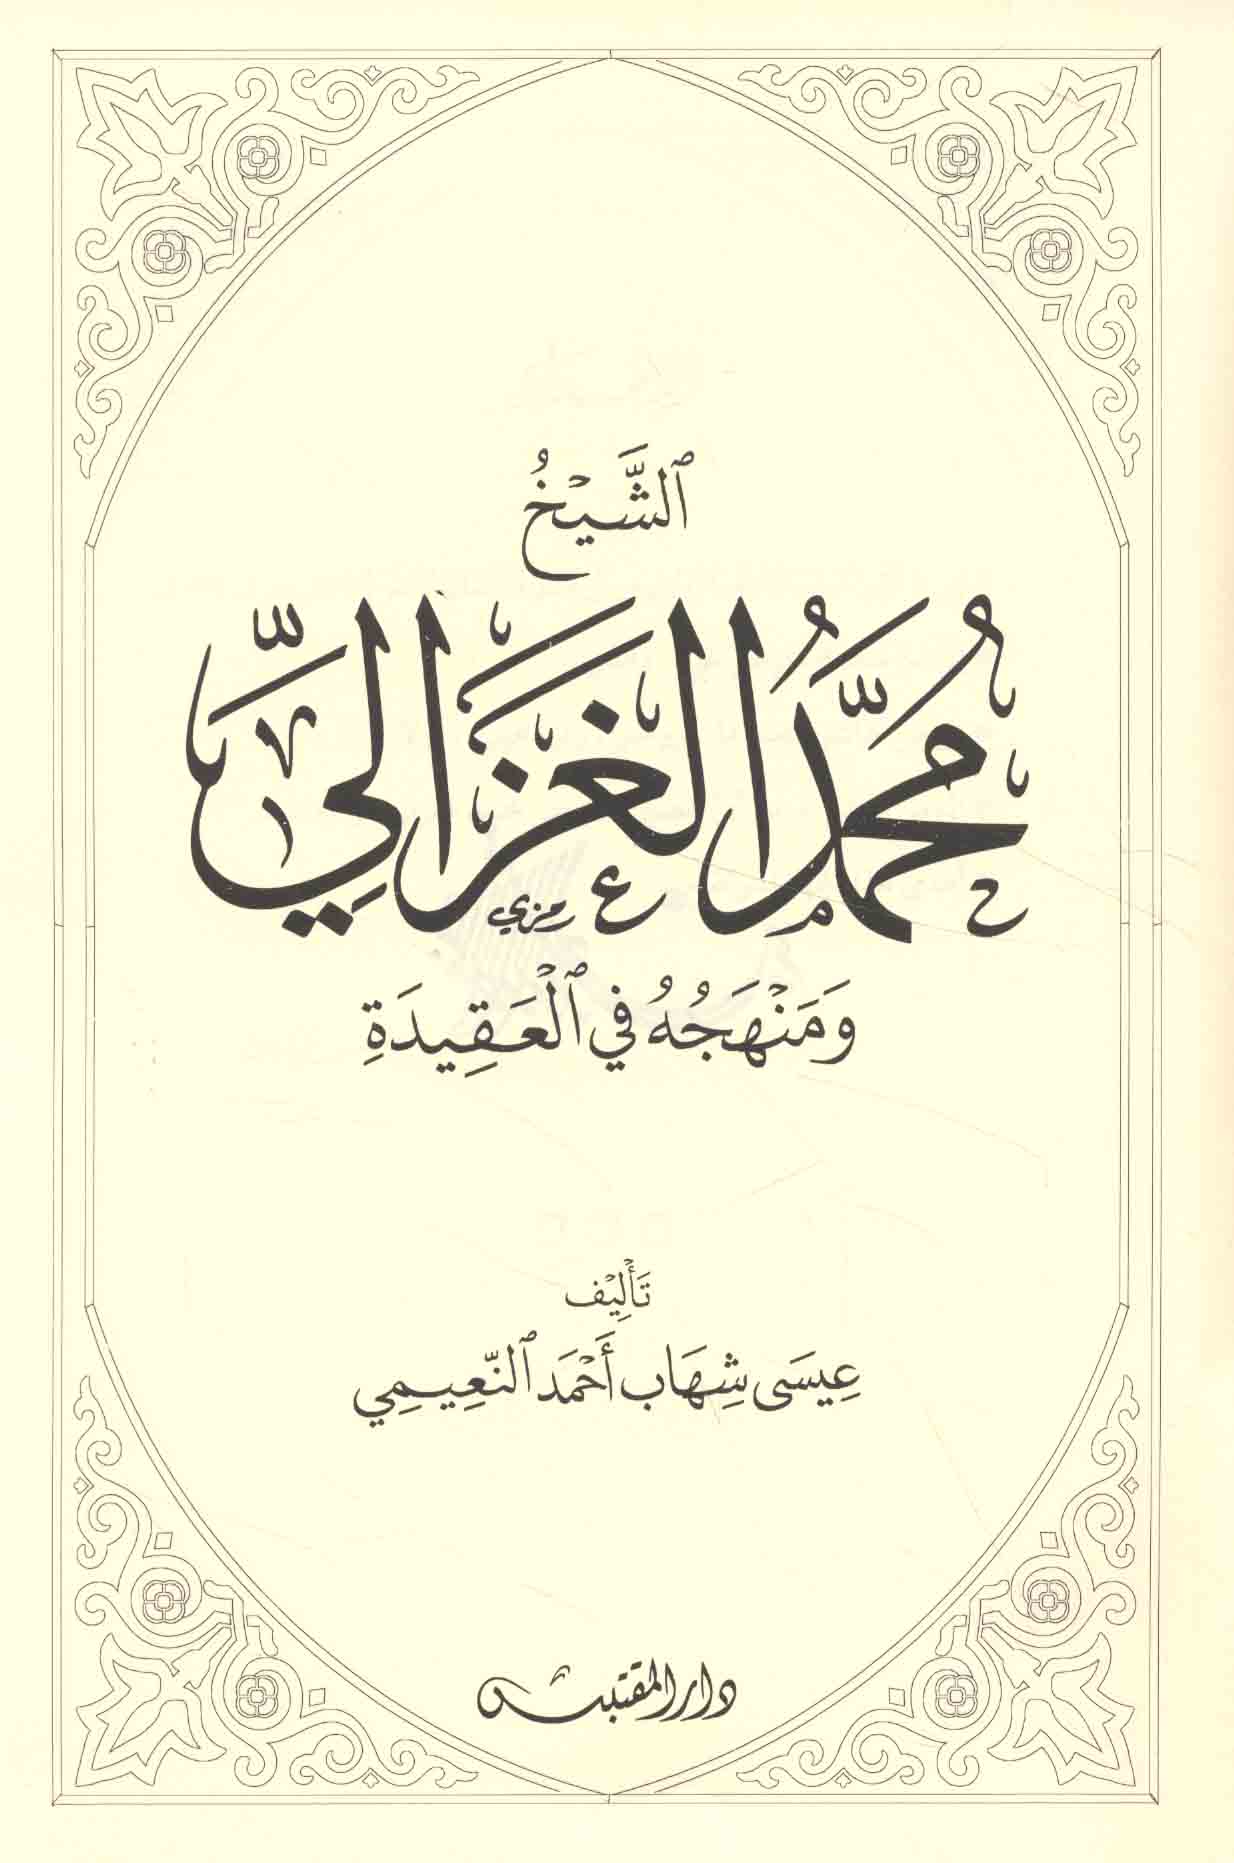 ٱلشَّيْخُ
مُحَمَّدُ الْغَزَالِيّ
وَمَنْهَجُهُ فِي ٱلْعَقِيدَةِ
تَأْلِيْف
عِيسَى شِهَاب أَحْمَد ٱلنَّعِيمِي
دار المقتبس